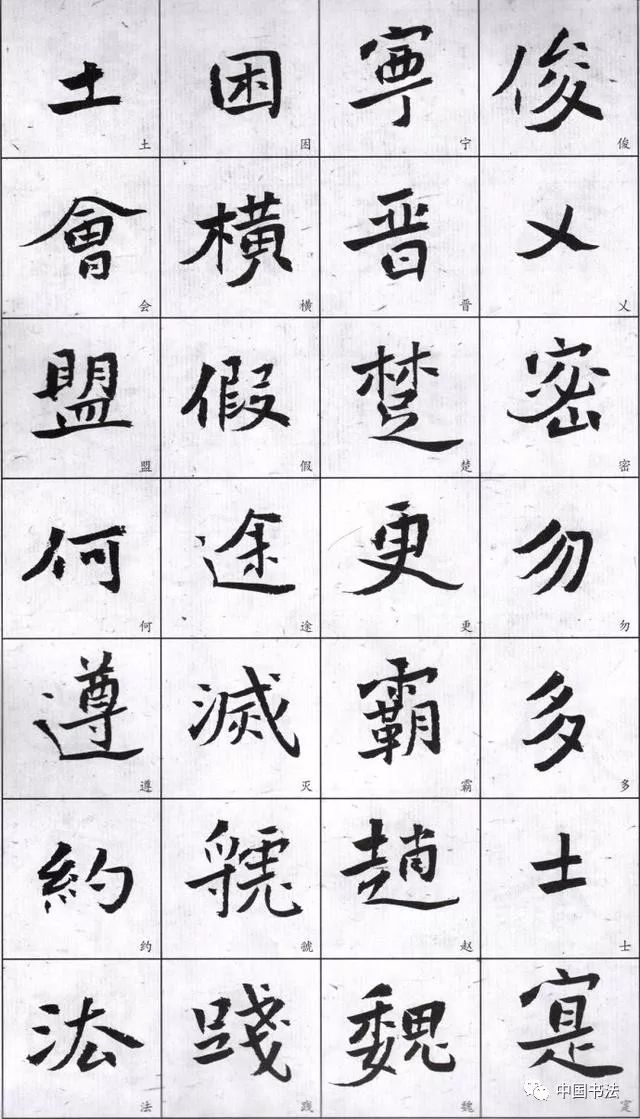 俊乂密勿多士寔
俊乂密勿多士寔
寧晉楚更霸趙魏
宁晋楚更霸赵魏
困橫假途滅虢踐
困横假途灭虢践
土會盟何遵約法
土会盟何遵约法
中国书法